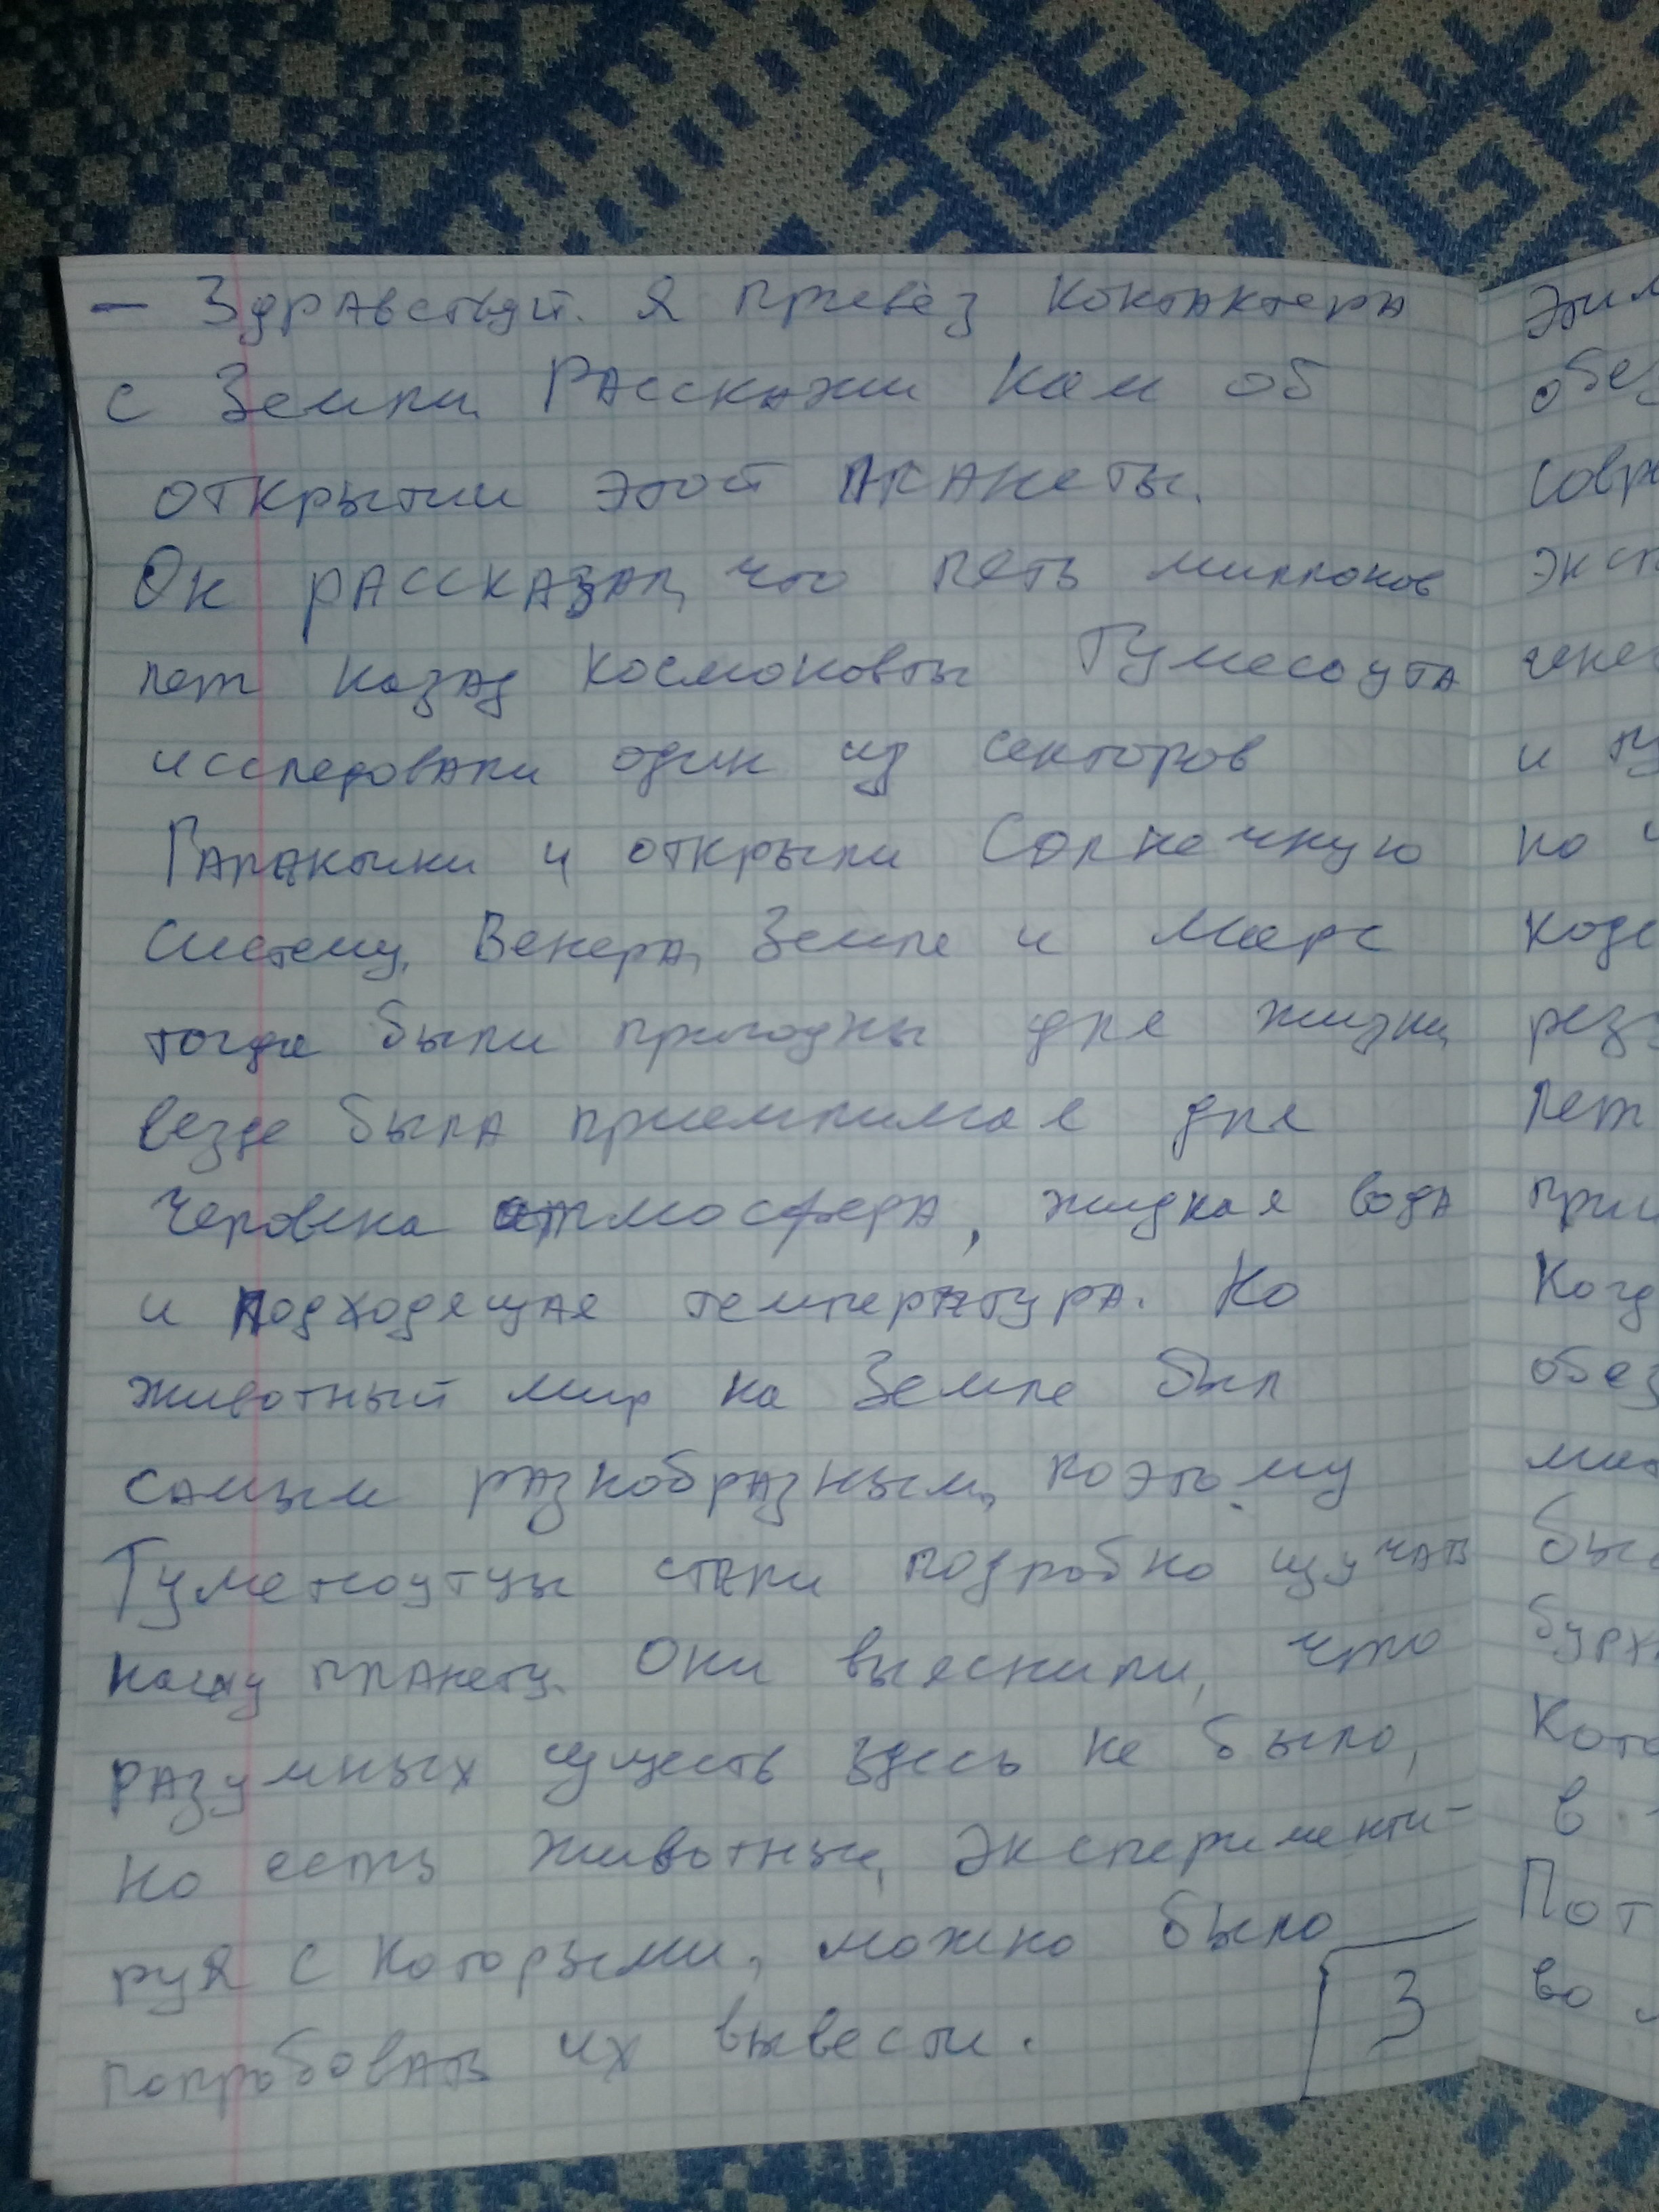 — Здравствуй. Я привёз контактера
с Земли. Расскажи нам об
открытии этой планеты.
Он рассказал, что пять миллионов
лет назад космоновты
исследовали один из секторов
Галактики и открыли Солнечную
систему. Венера, Земля и Марс
тогда были пригодны для жизни,
везде была приемлимая для
человека атмосфера, жидкая вода
и подходящая температура. Но
животный мир на Земле был
самым разнообразным, поэтому
стали подробно изучать
нашу планету. Они выяснили, что
разумных существ здесь не было,
но есть животные, эксперименти-
руя с которыми, можно было
попробовать их вывести.
3
этим
обез
совр
эксп
гене
и
но
коде
рез
лет
при
Когд
обез
мил
был
бурж
Кото
в
Пот
во